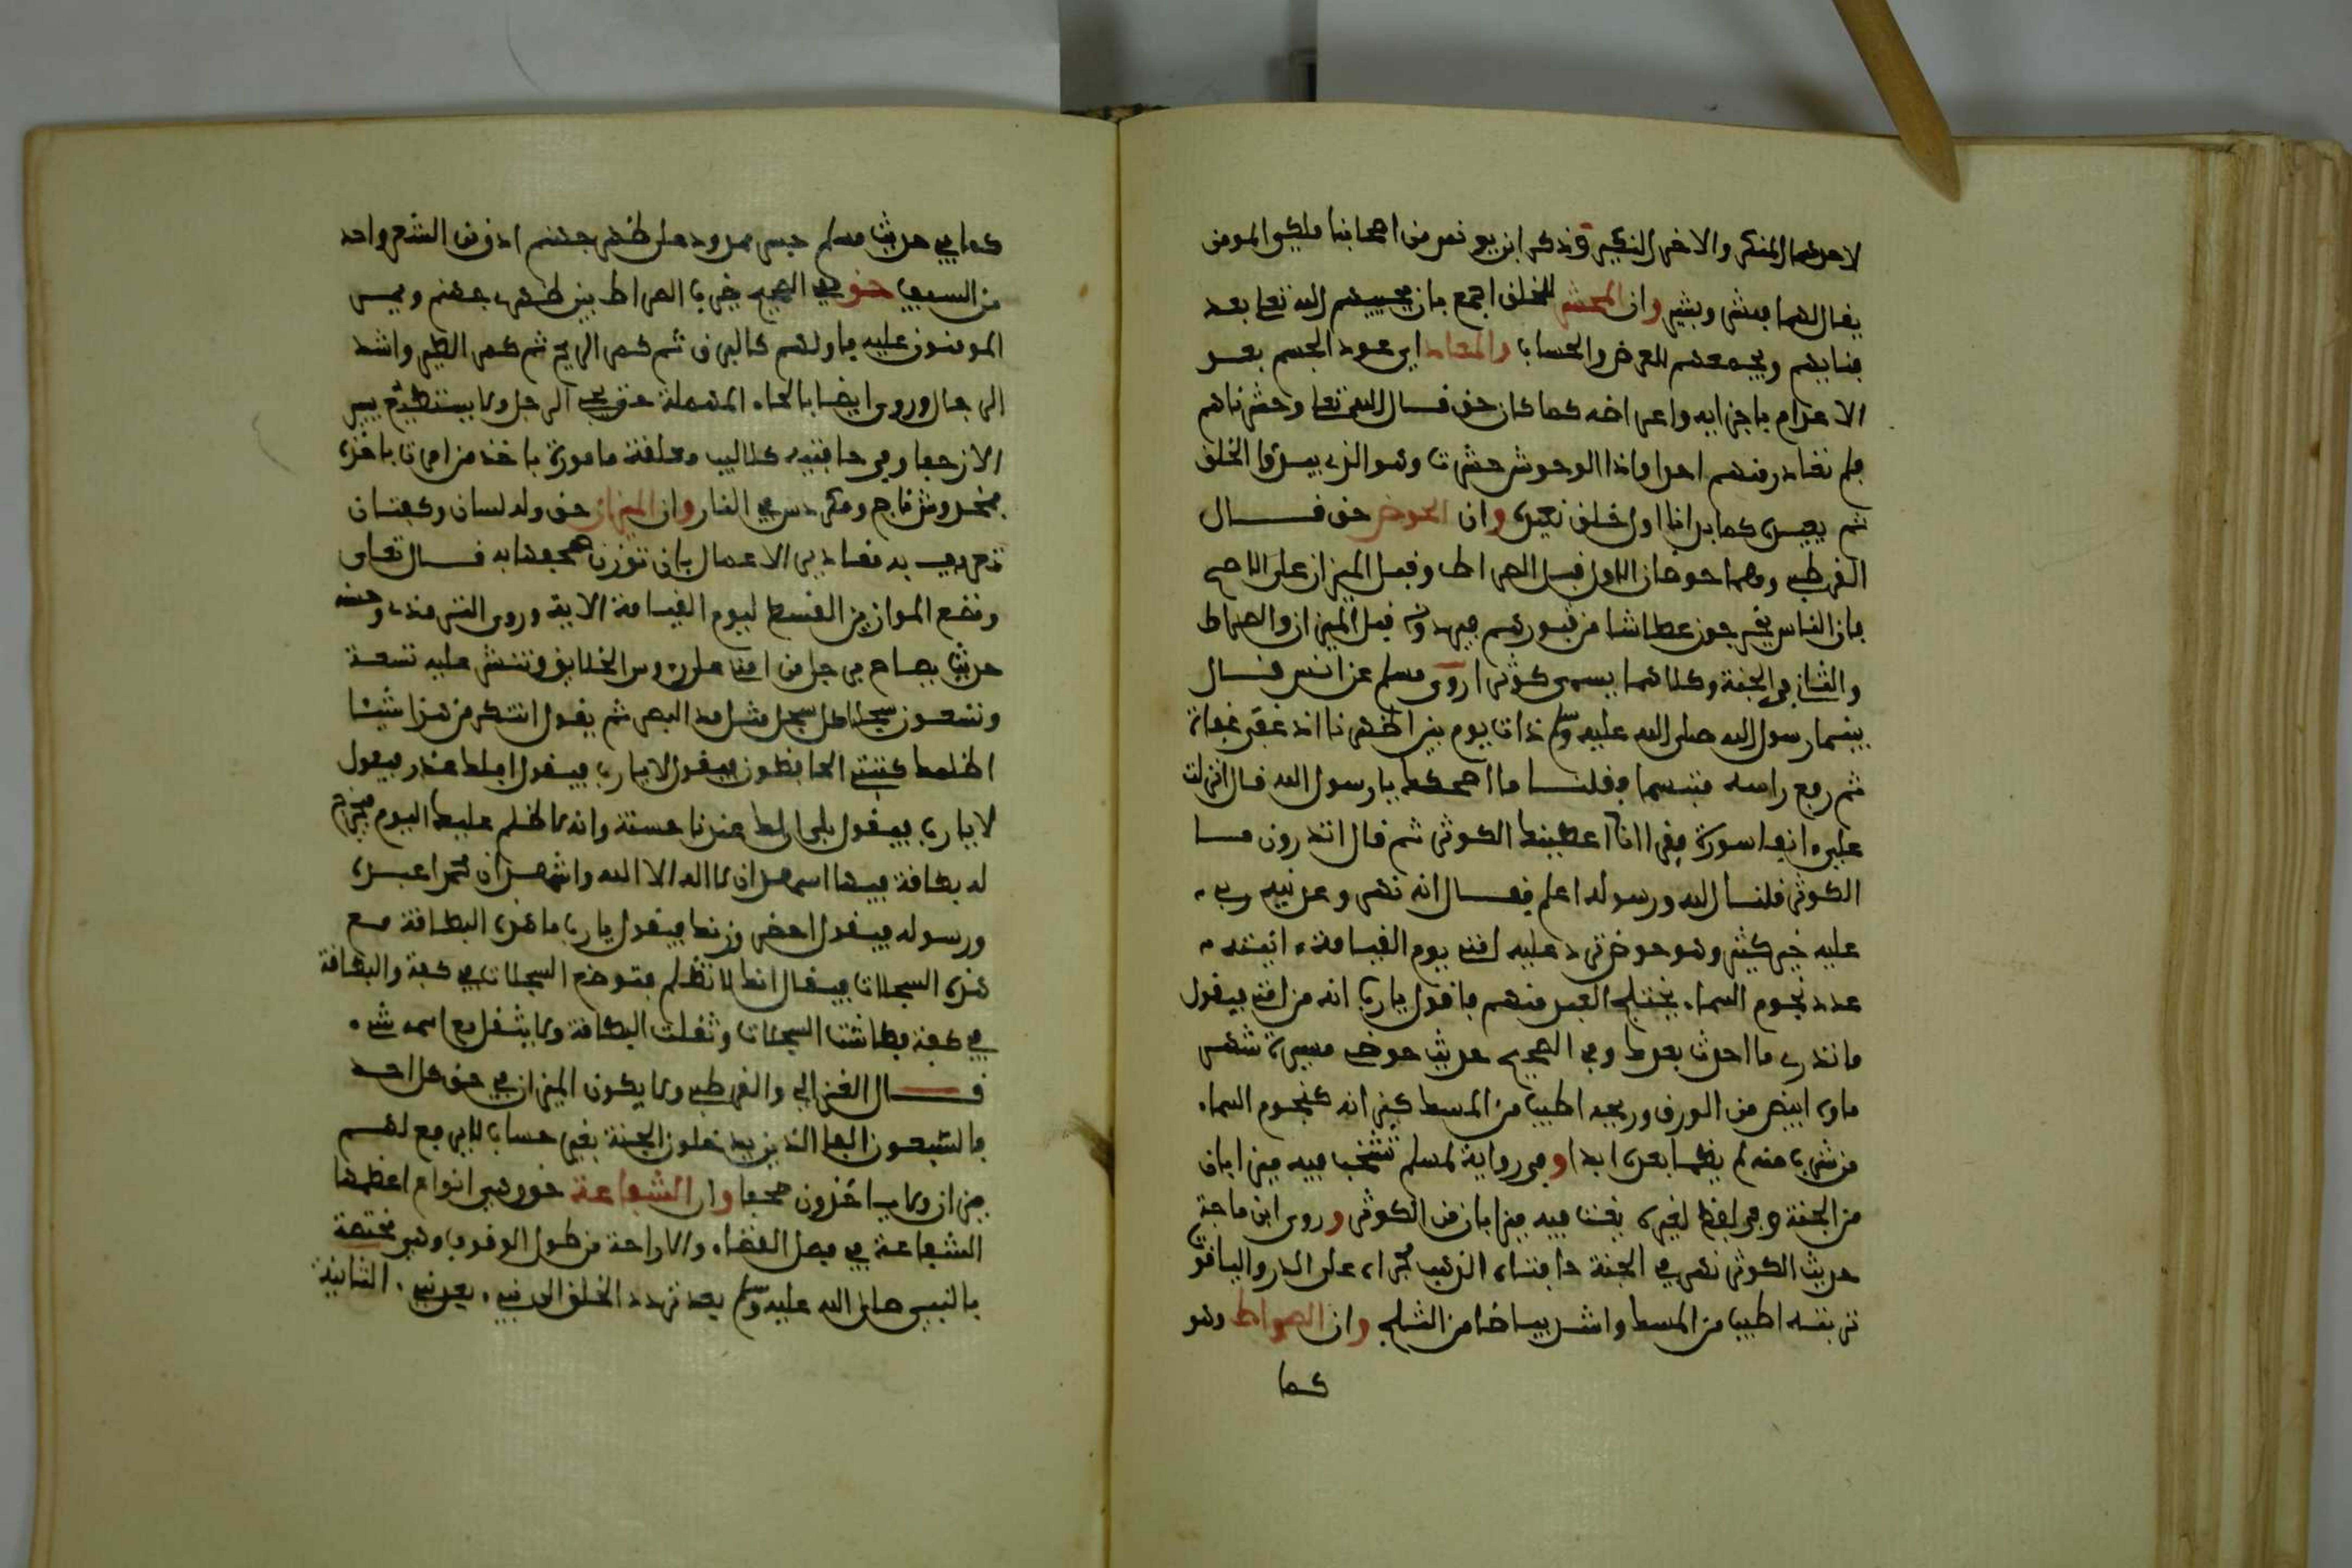 لاحدهما المنكر والاخر النكير وذكر ابن يونس من اصحابنا ملكي المومن
يقال لهما مبشر وبشير وان المحشر للخلق اجمع بان يحييهم الله تعلى بعد
فنايهم ويجمعهم للعرض والحساب والمعاد اي عود الجسم بعد
الاعدام باجزايه واعراضه كما كان حق قال الله تعلى وحشرناهم
فلم نغادر منهم احدا واذا الوحوش حشرت وهو الذي يبدؤا الخلق
ثم يعيده كما بدانا اول خلق نعيده وان الحوض حق قال
القرطبي وهما حوضان الاول قبل الصراط وقبل الميزان على الاصح
فان الناس يخرجون عطاشا من قبورهم فيردونه قبل الميزان والصراط
والثاني في الجنة وكلاهما يسمى كوثرا روى مسلم عن انس قال
بينما رسول الله صلى الله عليه وسلم ذات يوم بين اظهرنا اذ غفى غفاة
ثم رفع راسه متبسما فقلنا ما اضحكك يا رسول الله قال انزلت
علي انفا سورة فقرا انا اعطيناك الكوثر ثم قال اتدرون ما
الكوثر قلنا الله ورسوله اعلم فقال انه نهر وعدنيه ربي
عليه خير كثير وهو حوض ترد عليه امتي يوم القيامة انيته
عدد نجوم السما يختلج العبد منهم فاقول يا رب انه من امتي فيقول
ما تدري ما احدث بعدك وفي الصحيح حديث حوضي مسيرة شهر
ماوه ابيض من الورق وريحه اطيب من المسك كيزانه كنجوم السما
من شرب منه لم يظما بعده ابدا وفي رواية لمسلم تشخب فيه ميزابان
من الجنة وفي لفظ لغيره يغت فيه ميزابان من الكوثر وروى ابن ماجة
حديث الكوثر نهر في الجنة حافتاه الذهب مجراه على الدر والياقوت
تربته اطيب من المسك واشد بياضا من الثلج وان الصراط وهو
كما
كما في حديث مسلم جسر ممدود على ظهر جهنم ادق من الشعر واحد
من السيف حق في الصحيح يضرب الصراط بين ظهري جهنم ويمر
المومنون عليه فاولهم كالبرق ثم كمر الريح ثم كمر الطير واشد
الرجال وروي ايضا بالحاء المهملة حتى يجي الرجل ولا يستطيع يسير
الا زحفا وفي حافتيه كلاليب معلقة مامورة باخذ من امرت باخذه
فمخدوش ناج ومكردس في النار وان الميزان حق وله لسان وكفتان
تعرف به مقادير الاعمال بان توزن صحفها به قال تعلى
ونضع الموازين القسط ليوم القيامة الاية وروى الترمذي وحسنه
حديث يصاح برجل من امتي على روس الخلايق وتنشر عليه تسعة
وتسعون سجلا كل سجل مثل مد البصر ثم يقول اتنكر من هذا شيئا
اظلمك كتبتي الحافظون فيقول لا يا رب فيقول افلك عذر فيقول
لا يا رب فيقول بلى ان لك عندنا حسنة وانه لا ظلم عليك اليوم فيخرج
له بطاقة فيها اشهد ان لا اله الا الله واشهد ان محمدا عبده
ورسوله فيقول احضر وزنك فيقول يا رب ما هذه البطاقة مع
هذه السجلات فيقال انك لا تظلم فتوضع السجلات في كفة والبطاقة
في كفة فطاشت السجلات وثقلت البطاقة ولا يثقل مع اسم الله شيء
قال الغزالي والقرطبي ولا يكون الميزان في حق كل احد
فالسبعون الفا الذين يدخلون الجنة بغير حساب لا يرفع لهم
ميزان ولا ياخذون صحفا وان الشفاعة حق وهي انواع اعظمها
الشفاعة في فصل القضاء والاراحة من طول الوقوف وهي مختصة
بالنبي صلى الله عليه وسلم بعد تردد الخلق الى نبي بعد نبي الثانية